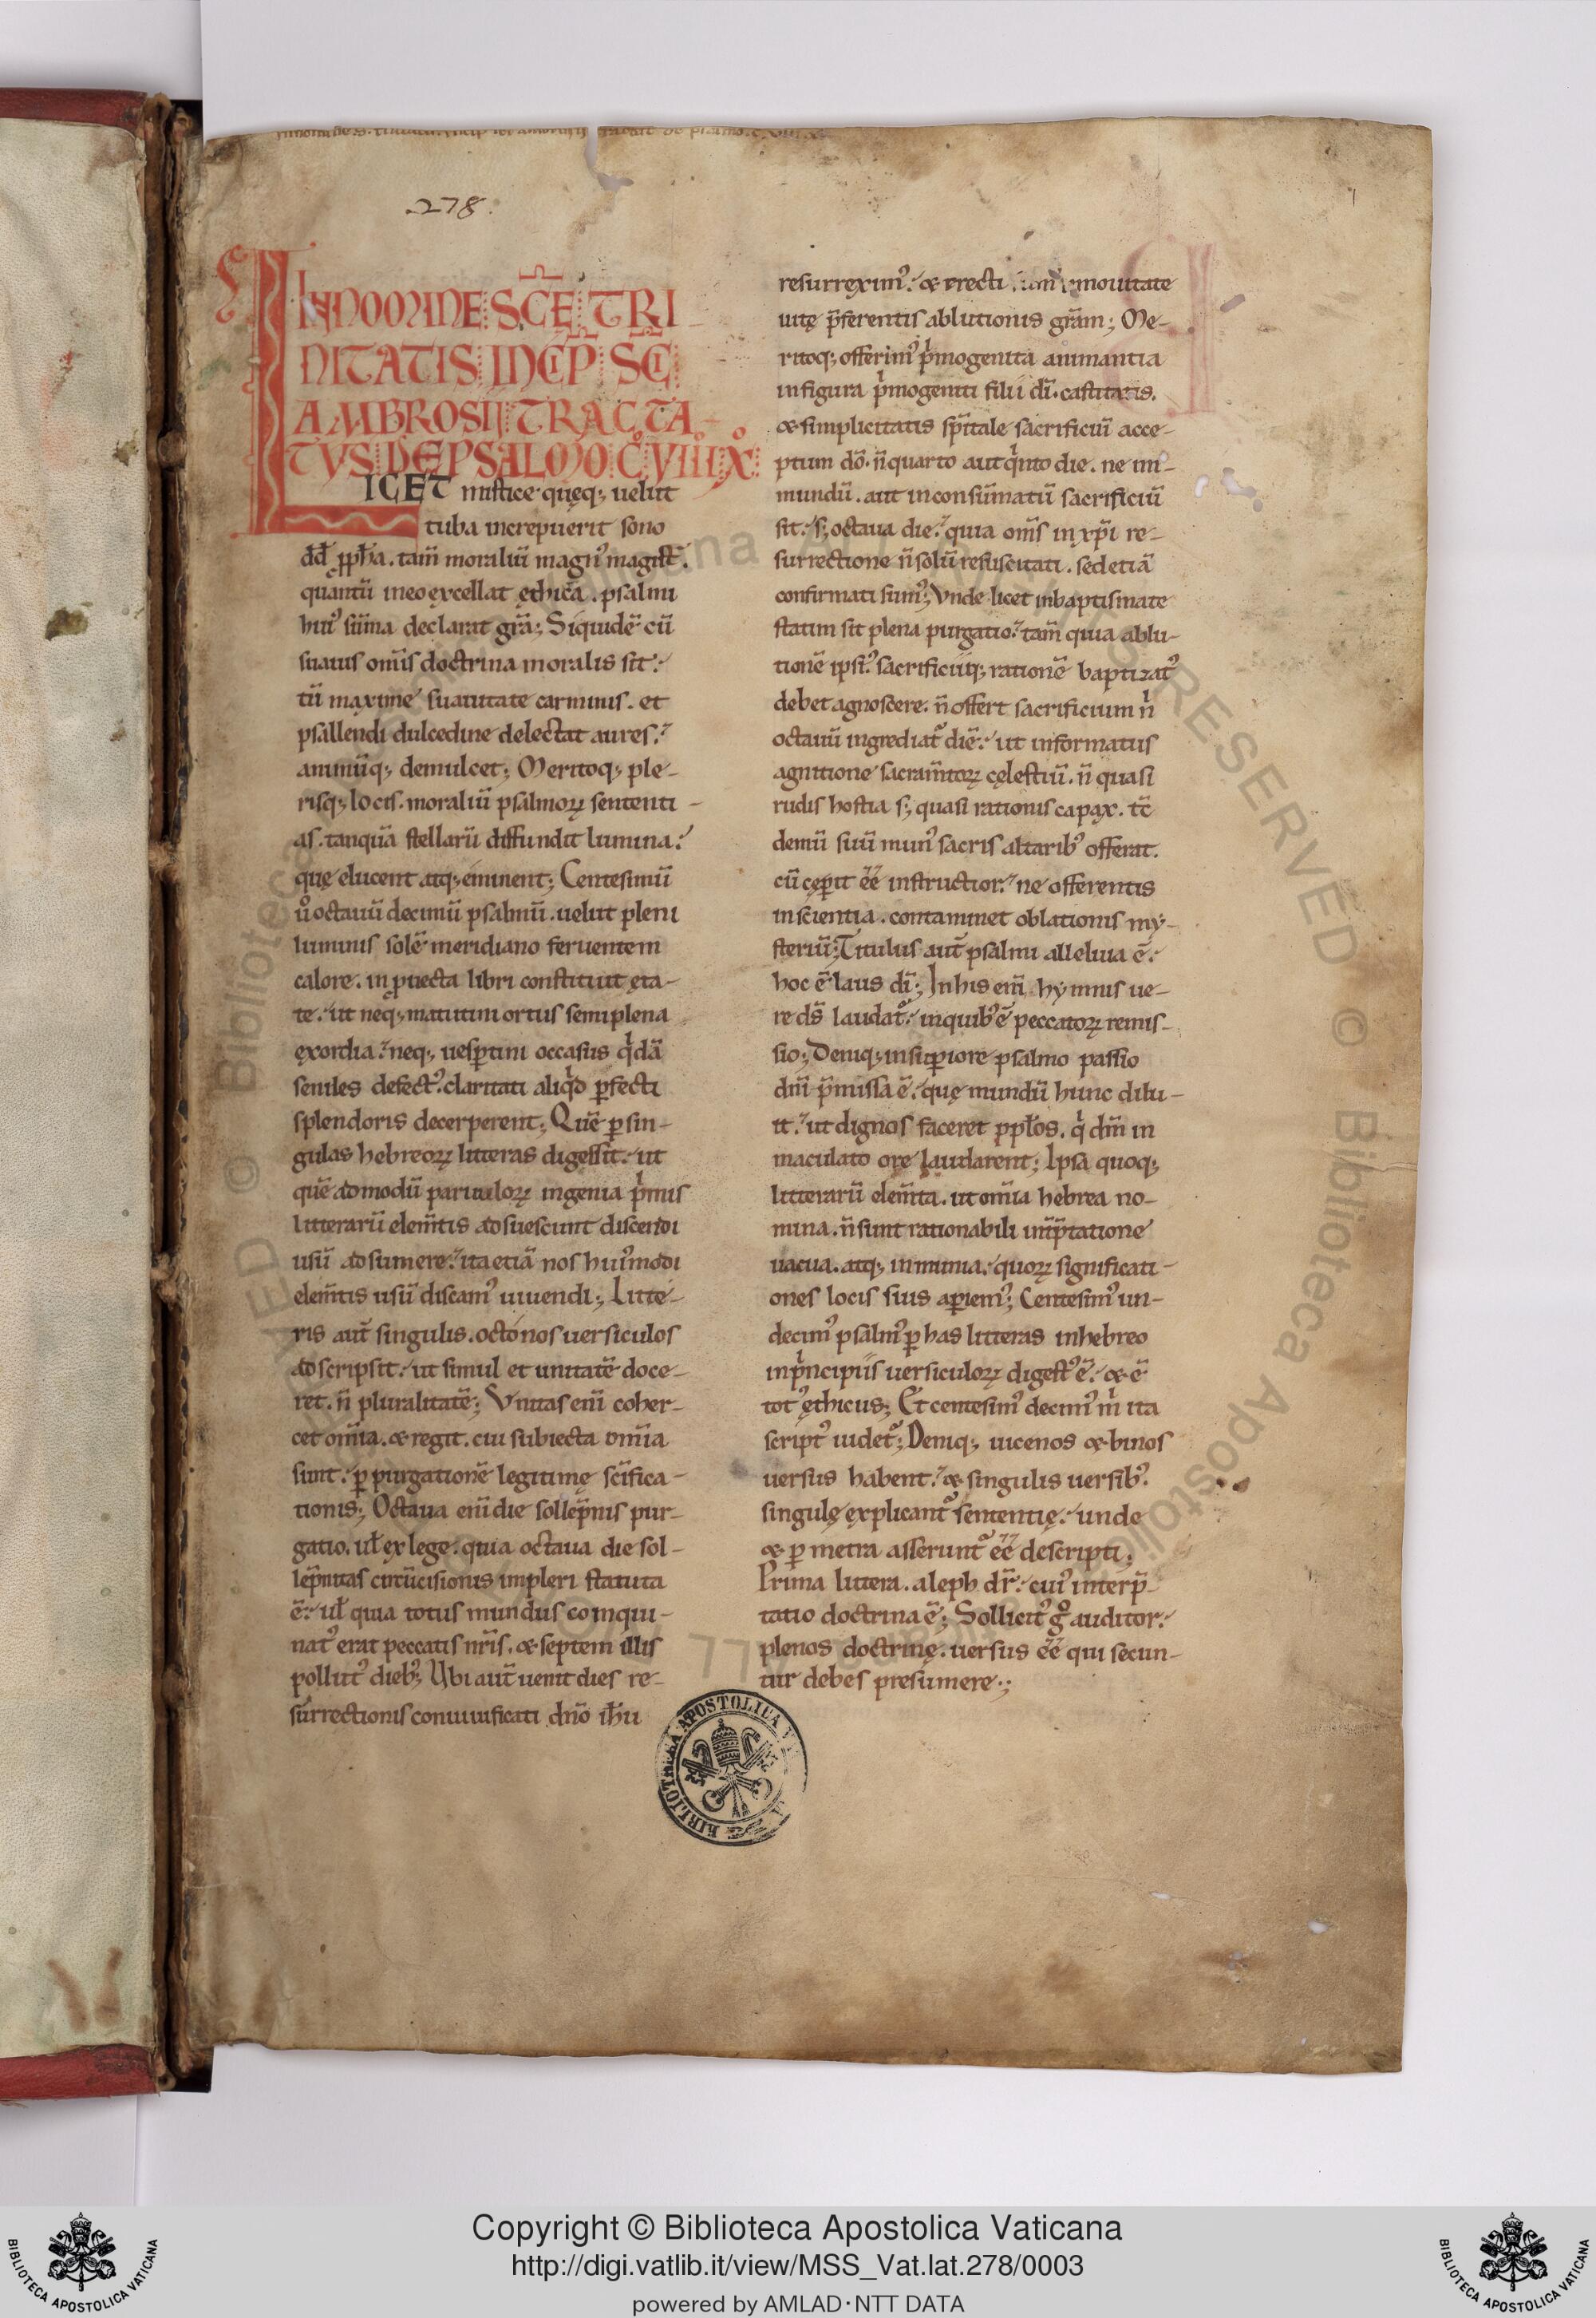 .278.
1
IN NOMINE SCE TRI
NITATIS INCIP SCI
AMBROSII TRACTA
TVS DE PSALMO C VIIII X
LICET mistice quęq; uelut
tuba increpuerit sono
dd̄ ꝓph̄a. tam̄ moraliū magn᾽ magist̄.
quantū in eo excellat ęthica. psalmi
hui᾽ sūma declarat grā; Siquidē cū
suauis om̄is doctrina moralis sit.
tū maxime suauitate carminis. et
psallendi dulcedine delectat aures.
animūq; demulcet; Meritoq; ple-
risq; locis. moraliū psalmoꝝ sententi-
as. tanquā stellarū diffundit lumina.
quę elucent atq; eminent; Centesimū
ůo octauū decimū psalmū. uelut pleni
luminis solē meridiano feruentem
calore. in ꝓuecta libri constituit ęta-
te. ut neq; matutini ortus semiplena
exordia. neq; uesꝑtini occasus qͥdā
seniles defect᾽. claritati aliqͥd ꝑfecti
splendoris decerperent; Quē ꝑ sin-
gulas hebreoꝝ litteras digessit. ut
quē admodū paruuloꝝ ingenia pͥmis
litterarū elem̄tis adsuescunt discendi
usū adsumere. ita etiā nos hui᾽modi
elem̄tis usū discam᾽ uiuendi; Litte-
ris aut̄ singulis. octonos uersiculos
adscripsit. ut simul et unitatē doce-
ret. n̄ pluralitatē; Vnitas eni᷒ coher-
cet om̄ia. & regit. cui subiecta om̄ia
sunt. ꝑ purgationē legitimę sc̄ifica-
tionis; Octaua eni᷒ die sollep̄nis pur-
gatio. ul̄ ex lege. quia octaua die sol-
lep̄nitas circūcisionis impleri statuta
ē. ul̄ quia totus mundus coinqui-
nat᾽ erat peccatis nr̄is. & septem illis
pollut᾽ dieb᾽; Ubi aut̄ uenit dies re-
surrectionis conuiuificati dn̄o ih̄u
resurrexim᾽. & erecti in nouitate
uitę p̄ferentis ablutionis grām; Me-
ritoq; offerim᾽ pͥmogenita animantia
in figura pͥmogeniti filii dī. castitatis.
& simplicitatis sp̄itale sacrificiū acce-
ptum dō. n̄ quarto aut qͥnto die. ne im-
mundū. aut inconsūmatū sacrificiū
sit. s; octaua die. quia om̄s in xp̄i re-
surrectione n̄ solū resuscitati. sed etiā
confirmati sum᾽; Vnde licet in baptismate
statim sit plena purgatio. tam̄ quia ablu-
tionē ipsi᾽ sacrificiiq; rationē baptizat᾽
debet agnoscere. n̄ offert sacrificium nͥ
octauū ingrediat᷑ diē. ut informatus
agnitione sacram̄toꝝ cęlestiū. n̄ quasi
rudis hostia s; quasi rationis capax. tc̄
demū suū mun᾽ sacris altarib᾽ offerat.
cū cęꝑit ēē instructior. ne offerentis
inscientia. contaminet oblationis my-
steriū; Titulus aut̄ psalmi alleluia ē.
hoc ē laus dī; In his eni᷒ hymnis ue-
re ds̄ laudat᷑. in quib᾽ ē peccatoꝝ remis-
sio; Deniq; in suꝑiore psalmo passio
dn̄i p̄missa ē. quę mundū hunc dilu-
it. ut dignos faceret ppl̄os. qͥ dm̄ in
maculato ore laudarent; Ipsa quoq;
litterarū elem̄ta. ut om̄ia hebrea no-
mina. n̄ sunt rationabili int̄p̄tatione
uacua. atq; inmunia. quoꝝ significati-
ones locis suis aꝑiem᾽; Centesim᾽ un-
decim᾽ psalm᾽ ꝑ has litteras in hebreo
in pͥncipiis uersiculoꝝ digest᾽ ē. & ē
tot᾽ ęthicus; Et centesim᾽ decim᾽ mͥ ita
script᾽ uidet᷑; Deniq; uicenos & binos
uersus habent. & singulis uersib᾽.
singulę explicant᷑ sententię. unde
& ꝑ metra asserunt᷑ ēē descripti;
Prima littera. aleph dr̄. cui᾽ interp̄-
tatio doctrina ē; Sollicit᾽ gͦ auditor.
plenos doctrinę. uersus ēē qui secun-
tur debes presumere;
BIBLIOTHECA APOSTOLICA VA
Copyright © Biblioteca Apostolica Vaticana
http://digi.vatlib.it/view/MSS_Vat.lat.278/0003
powered by AMLAD·NTT DATA
BIBLIOTECA APOSTOLICA VATICANA
BIBLIOTECA APOSTOLICA VATICANA